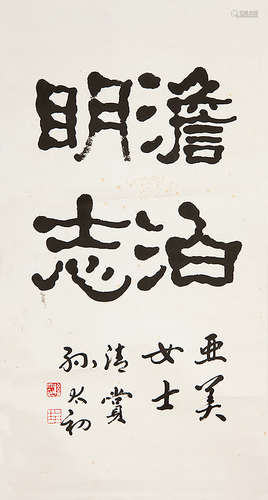 澹泊
明志
亚美
女士
清赏
孙太初